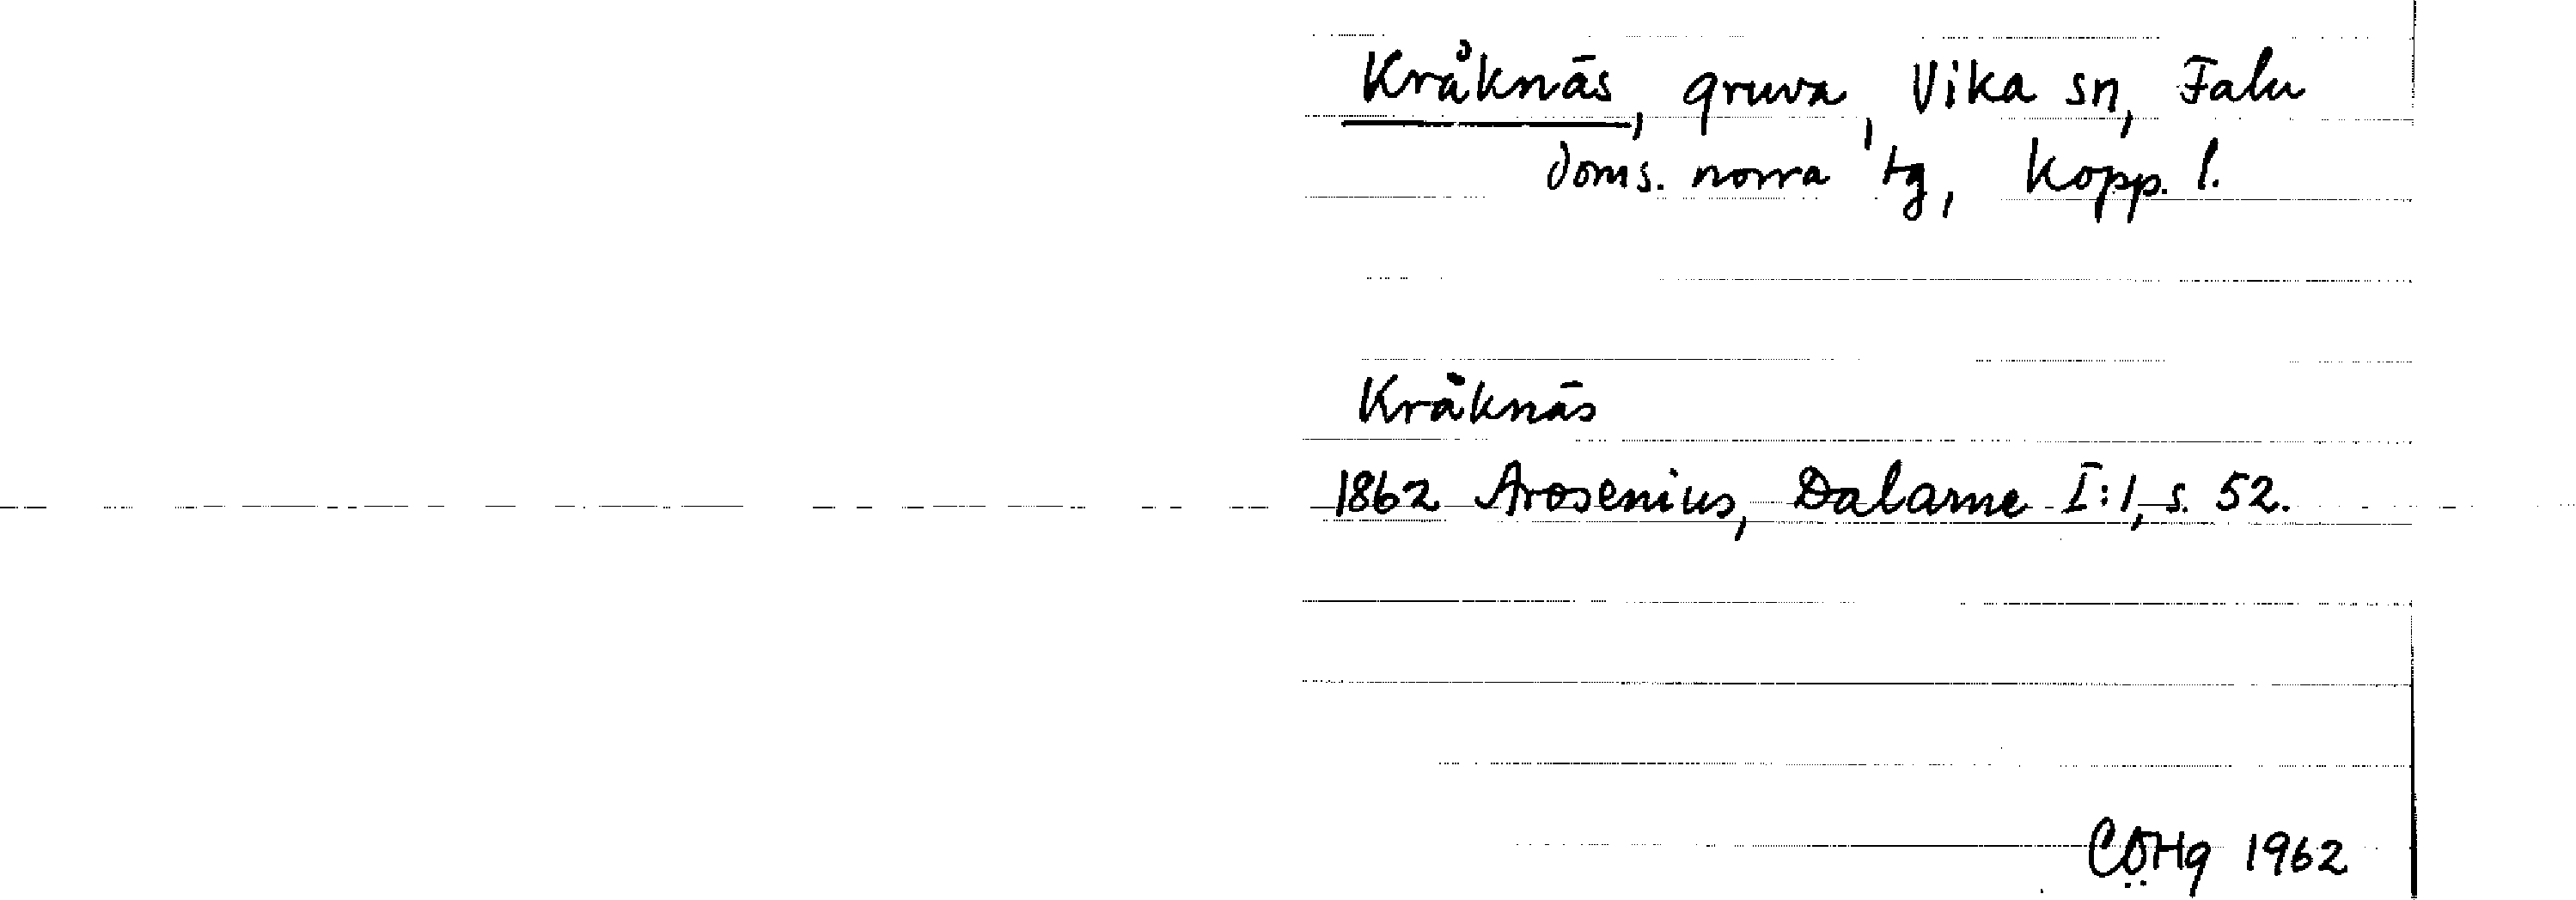 Kråknäs, gruva, Vika sn, Falu
doms. norra tg, Kopp. l.
Kråknäs
1862 Arosenius, Dalarne I:1, s. 52.
CÖHg 1962